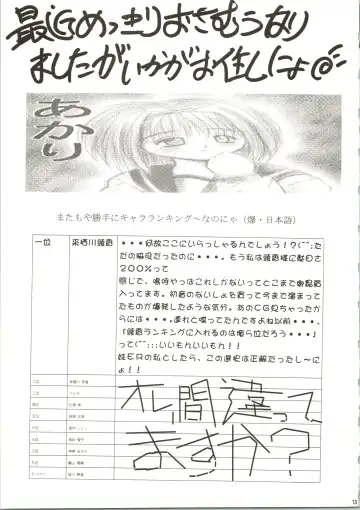 最近めっきりおさむうなり
ましたがいかがお住しにょ
あかり
またもや勝手にキャラランキング〜なのにゃ（爆・日本語）
一位
来栖川綾香
・・・何故ここにいらっしゃるんでしょう！？(^^;ただの脇役だったのに・・・。もう私は綾香様に駄目さ
２００％って
感じで、嗚呼やっぱこれしかないってとこまで
入ってます。初音のないしょを買って今まで溜まって
たものが爆発したような気分。あのCG見ちゃったから
には・・・。連れと喋ってたんですよね以前・・・、
「綾香ランキングに入れるのは俺ら位だろう・・・」
って(^^;;;いいもんいいもん！！
妹ＥＤの私としたら、この選択は正解だったし〜に
ょ！！
二位
三位
四位
五位
六位
七位
八位
九位
オレ間違って
ますか？
13